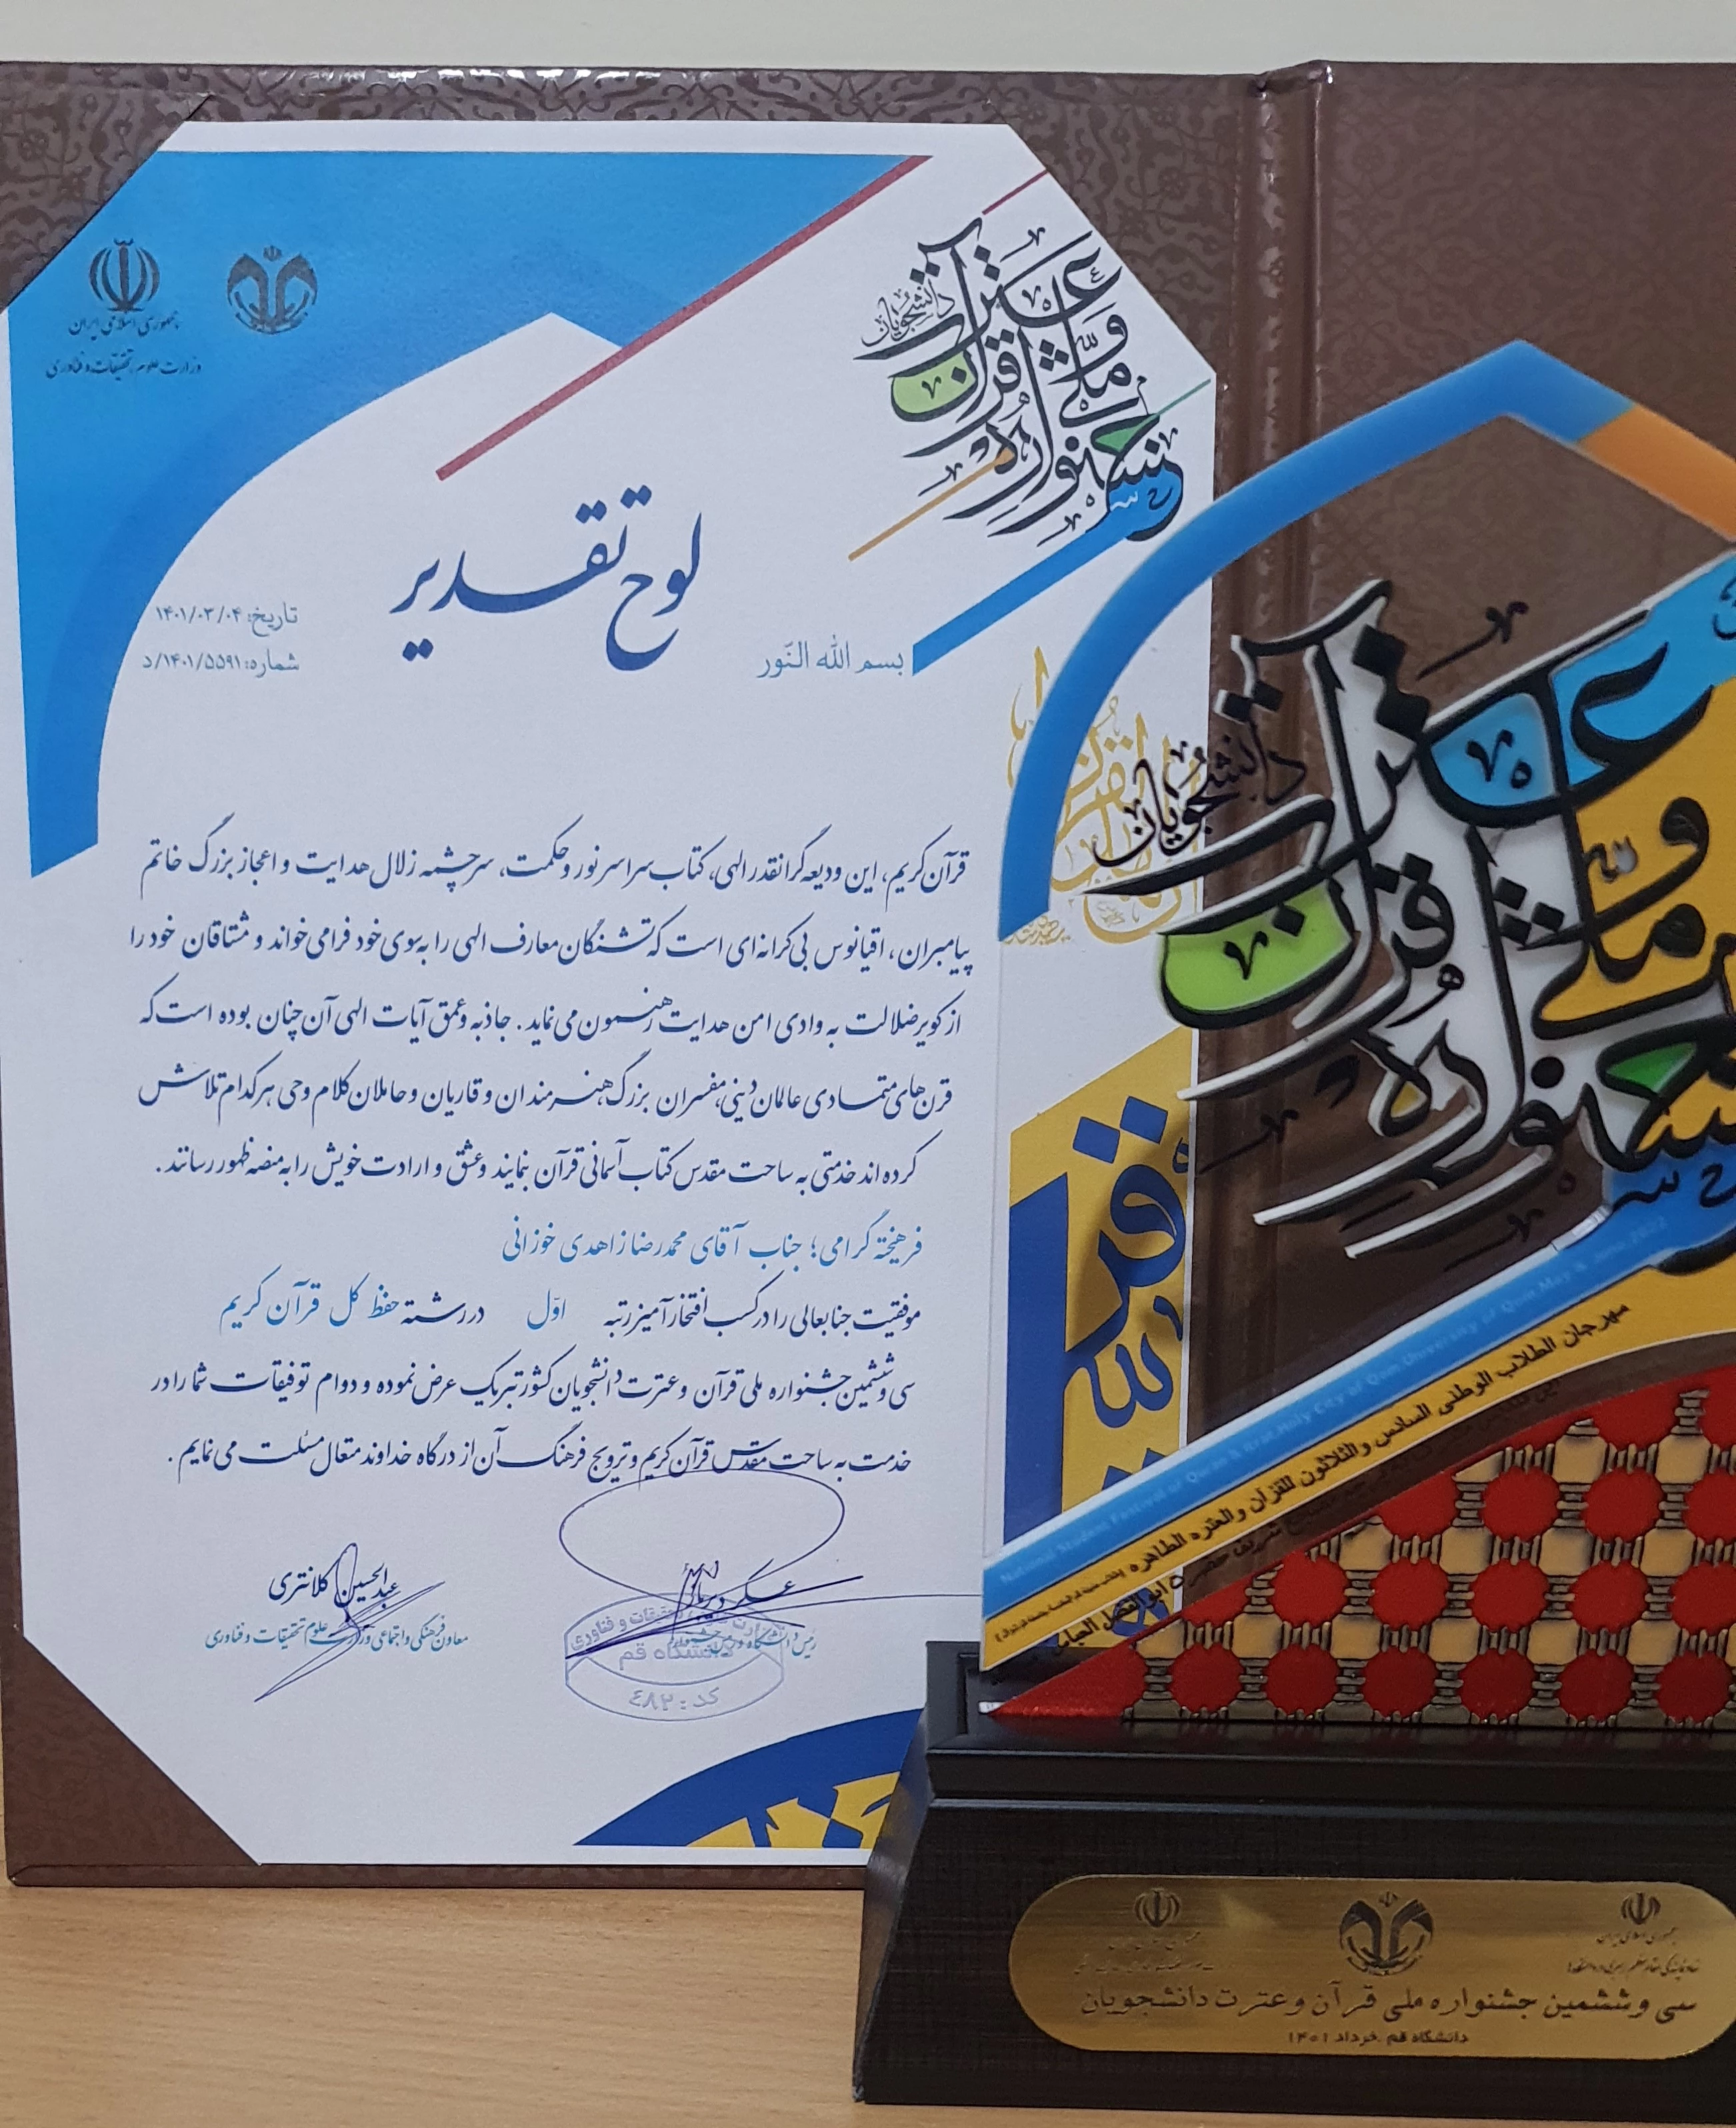 جمهوری اسلامی ایران
وزارت علوم، تحقیقات و فناوری
جشنواره ملی قرآن و عترت دانشجویان
لوح تقدیر
تاریخ: ۱۴۰۱/۰۳/۰۴
شماره: ۱۴۰۱/۵۵۹۱/د
بسم الله النّور
قرآن کریم، این ودیعه گرانقدر الهی، کتاب سراسر نور و حکمت، سرچشمه زلال هدایت و اعجاز بزرگ خاتم
پیامبران، اقیانوس بی کرانه‌ای است که تشنگان معارف الهی را به سوی خود فرا می‌خواند و مشتاقان خود را
از کویر ضلالت به وادی امن هدایت رهنمون می‌نماید. جاذبه و عمق آیات الهی آن چنان بوده است که
قرن‌های متمادی عالمان دینی، مفسران بزرگ، هنرمندان و قاریان و حاملان کلام وحی هر کدام تلاش
کرده‌اند خدمتی به ساحت مقدس کتاب آسمانی قرآن بنمایند و عشق و ارادت خویش را به منصه ظهور رسانند.
فرهیخته گرامی؛ جناب آقای محمدرضا زاهدی خوزانی
موفقیت جنابعالی را در کسب افتخارآمیز رتبه اوّل در رشته حفظ کل قرآن کریم
سی و ششمین جشنواره ملی قرآن و عترت دانشجویان کشور تبریک عرض نموده و دوام توفیقات شما را در
خدمت به ساحت مقدس قرآن کریم و ترویج فرهنگ آن از درگاه خداوند متعال مسئلت می‌نمایم.
عسگر دیرباز
رئیس دانشگاه و
عبدالحسین کلانتری
معاون فرهنگی و اجتماعی وزارت علوم تحقیقات و فناوری
دانشگاه قم
کد: ٤٨٢
جشنواره ملی قرآن و عترت دانشجویان
National Student Festival of Quran & Itrat, Holy City of Qom, University of Qom, May & June, 2022
مهرجان الطلاب الوطنی السادس و الثلاثون للقرآن و العتره الطاهره
جمهوری اسلامی ایران
سی و ششمین جشنواره ملی قرآن و عترت دانشجویان
دانشگاه قم .خرداد ۱۴۰۱